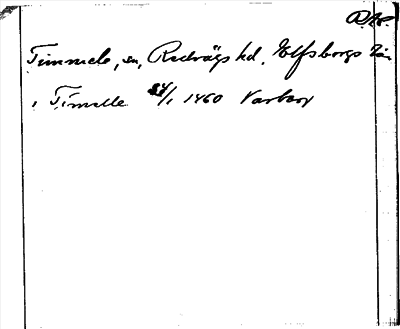 R.A.P.
Timmele, sn, Redvägs hd, Elfsborgs län
i Timelle 24/1 1460 Varberg